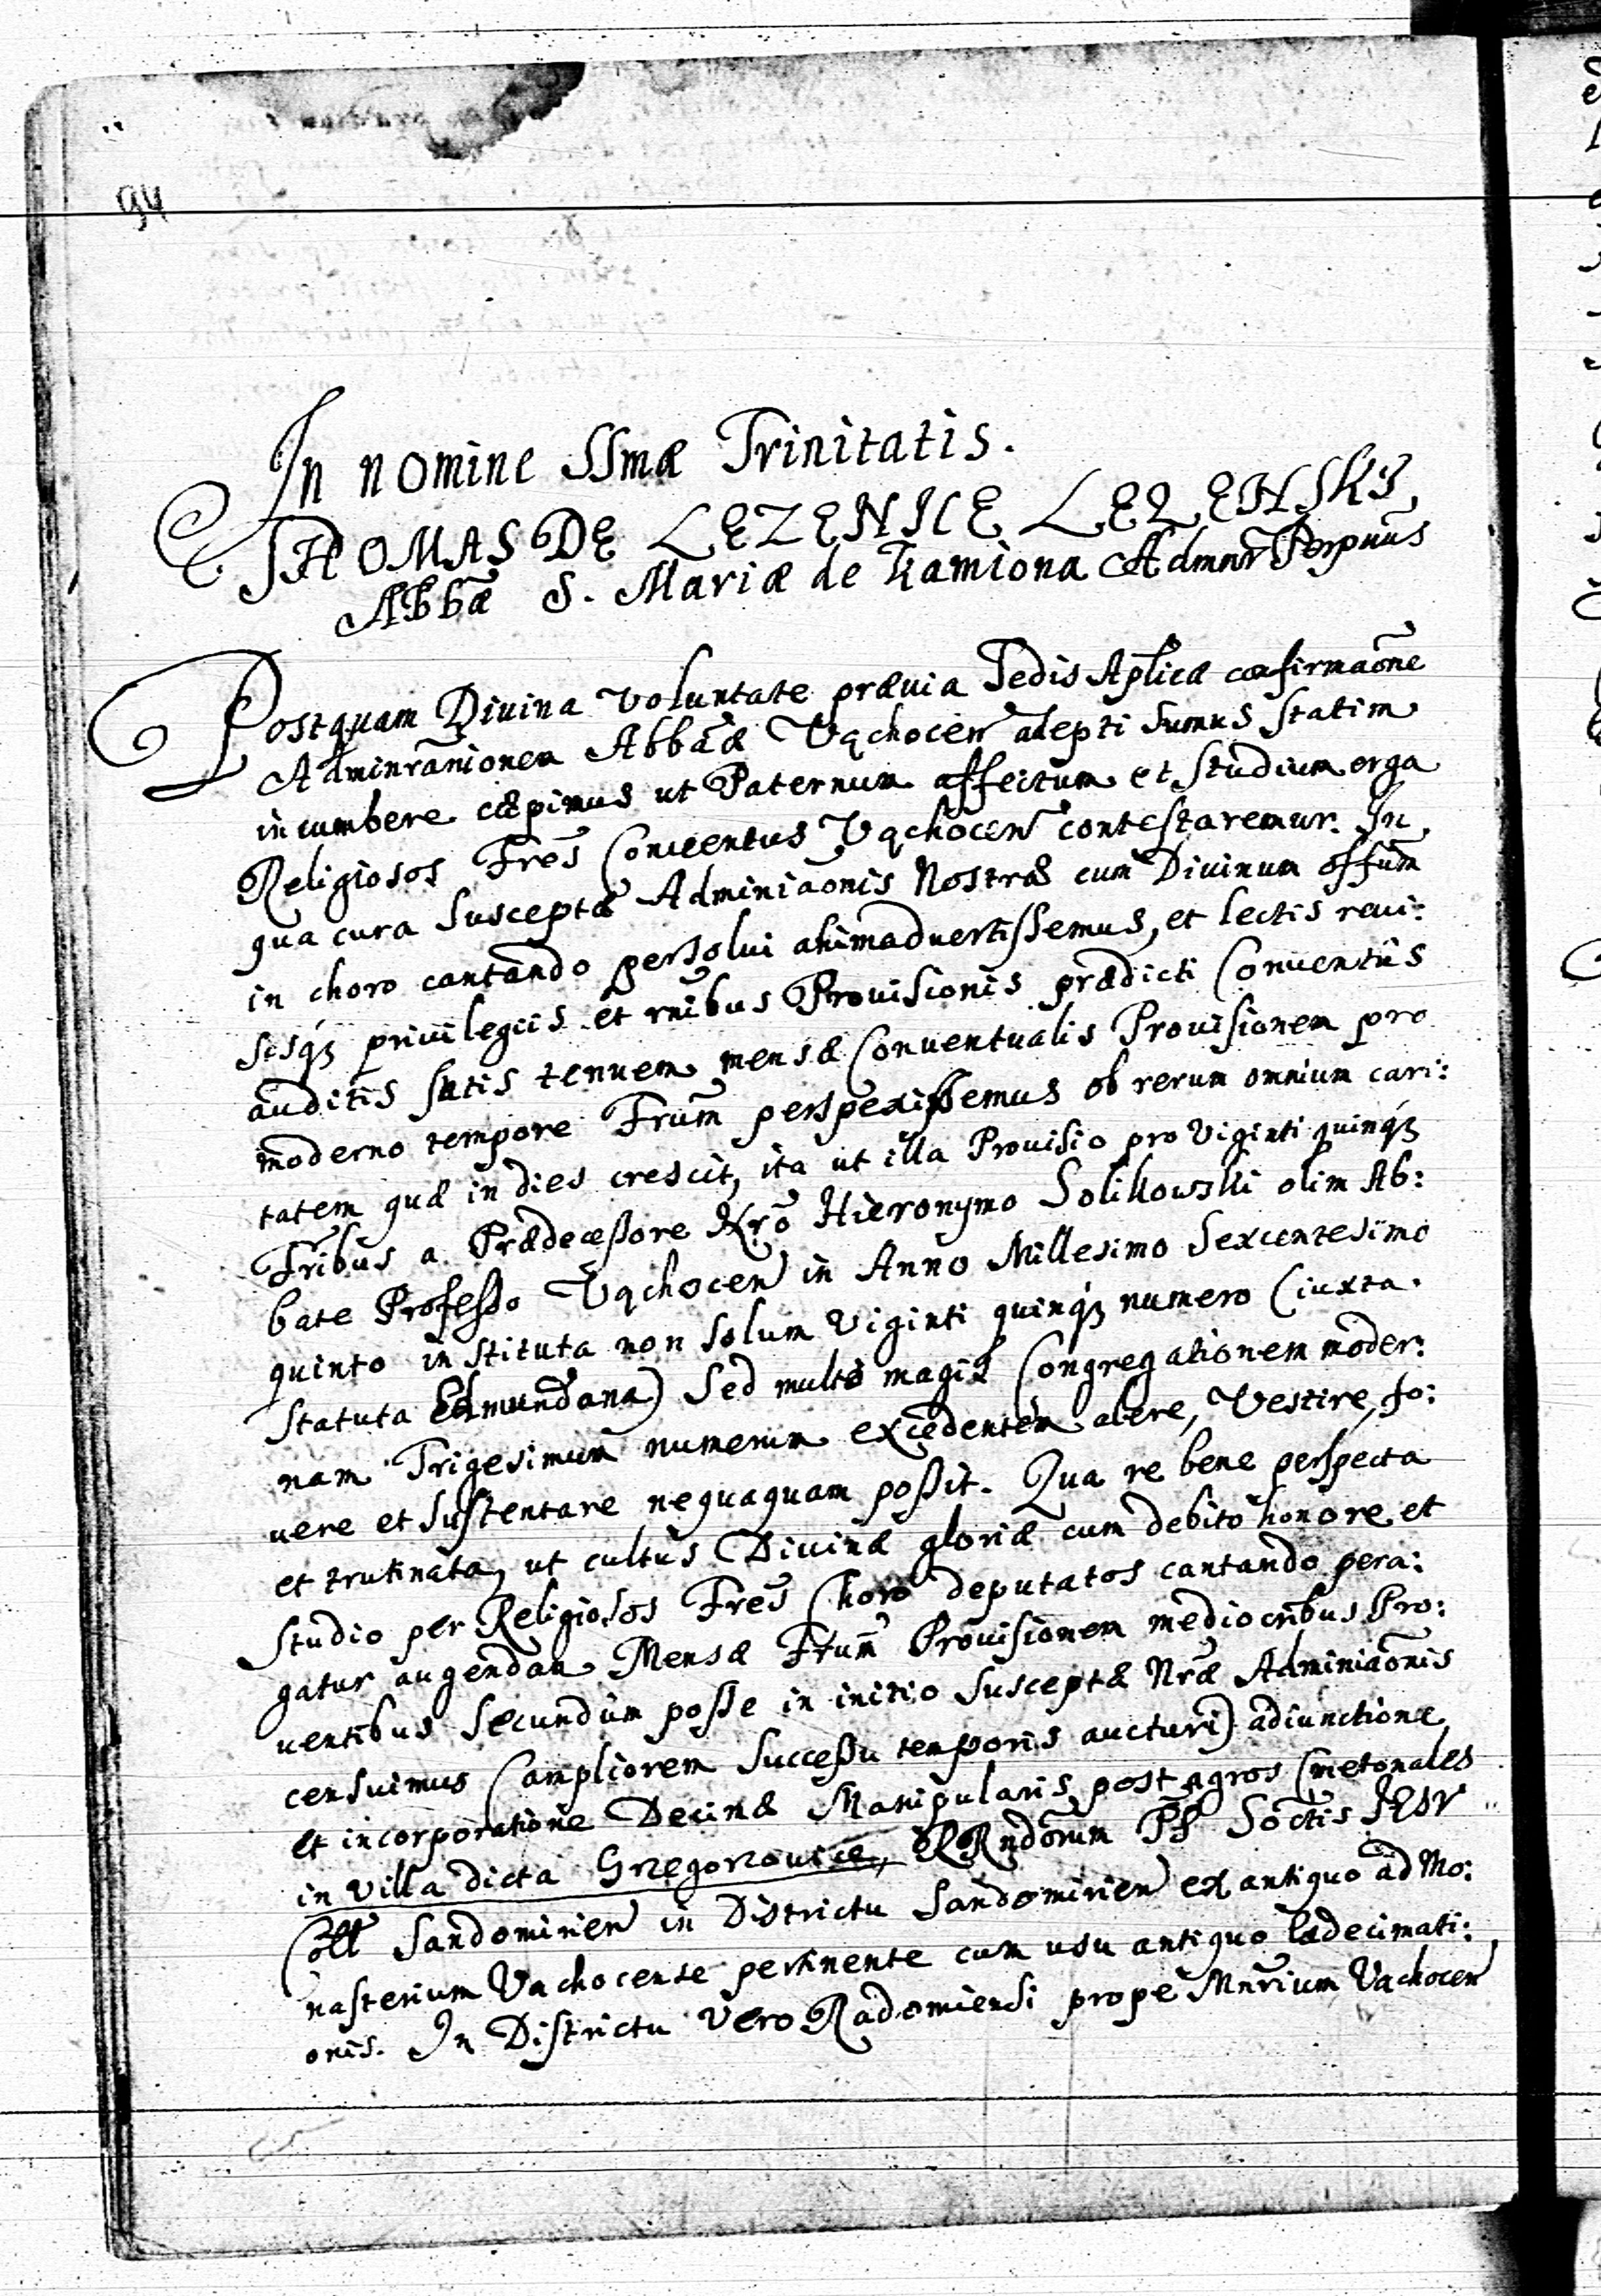 94
In nomine SSmæ Trinitatis.
THOMAS DE LEZENICE LEZENSKY,
Abbæ S. Mariæ de Kamiona Admnr Perpuus
Postquam Diuina Voluntate præuia Sedis Aplicæ confirmaõne
Adminranionem Abbãæ Vąchocen adepti sumus statim
incumbere cæpimus ut Paternum affectum et studium erga
Religiosos Frēs Conuentus Vąchocen contestaremur. In
qua cura susceptæ Adminiaõnis Nostræ cum Diuinum offum
in choro cantando persolui animaduertissemus, et lectis reui:
sisq; priuilegiis et rnibus Prouisionis prædicti Conuentûs
auditis satis tenuem mensæ Conuentualis Prouisionem pro
moderno tempore Frum perspexissemus ob rerum omnium cari:
tatem quæ in dies crescit, ita ut illa Prouisio pro Viginti quinq;
Fribus a Prædecessore Nrō Hieronymo Solikowski olim Ab:
bate Professo Vąchocen in Anno Millesimo Sexcentesimo
quinto instituta non solum Viginti quinq; numero (iuxta
statuta Edmundana) sed multo magis Congregationem moder:
nam Trigesimum numerum excedentem alere, Vestire, fo:
uere et sustentare nequaquam possit. Qua re bene perspecta
et trutinata, ut cultus Diuinæ gloriæ cum debito honore et
studio per Religiosos Frēs Choro deputatos cantando pera:
gatur augendam Mensæ Frum Prouisionem mediocribus Pro:
uentibus secundum posse in initio susceptæ Nræ Adminiaõnis
censuimus (ampliorem successu temporis aucturi) adiunctione
et incorporatione Decimæ Manipularis post agros Cmetonales
in Villa dicta Grzegorzouice, RRndorum PP Soctis JESV
Coll Sandomirien in Districtu Sandomirien ex antiquo ad Mo:
nasterium Vachocense pertinente cum usu antiquo Ladecimati:
onis. In Districtu Vero Radomiensi prope Mnrium Vachocen